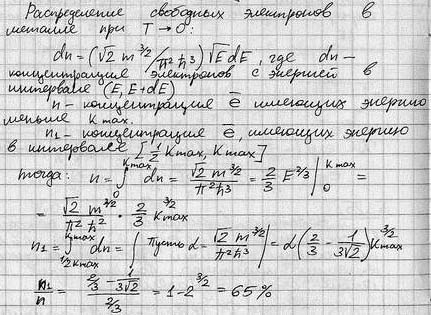 Распределение свободных электронов в
металле при T → 0:
dn = (√2 m^3/2 / π² ħ³) √E dE, где dn –
концентрация электронов с энергией в
интервале (E, E+dE)
n - концентрация ē имеющих энергию
меньше Kmax.
n₁ - концентрация ē, имеющих энергию
в интервале [1/2 Kmax, Kmax]
тогда: n = ∫₀^Kmax dn = √2 m^3/2 / π² ħ³ = 2/3 E^2/3 |₀^Kmax =
= √2 m^3/2 / π² ħ² · 2/3 Kmax^3/2
n₁ = ∫_1/2Kmax^Kmax dn = | Пусть α = √2 m^3/2 / π² ħ³ | = α (2/3 - 1/3√2) Kmax^3/2
n₁/n = (2/3 - 1/3√2) / 2/3 = 1 - 2^3/2 = 65%